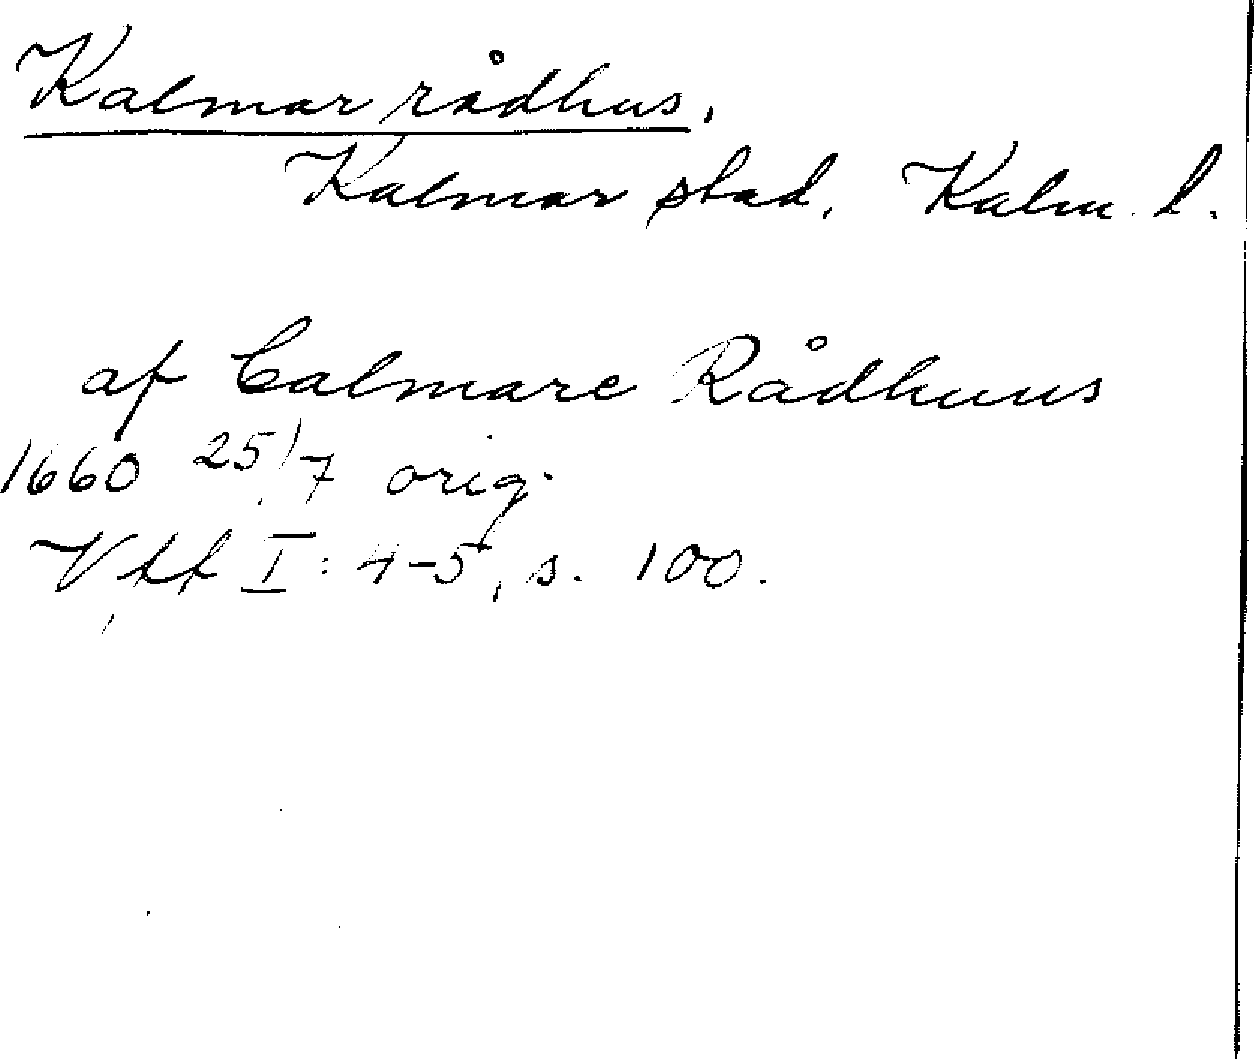 Kalmar rådhus.
Kalmar stad. Kalm. l.
af Calmare Rådhuus
1660 25/7 orig.
Vff I: 4-5, s. 100.